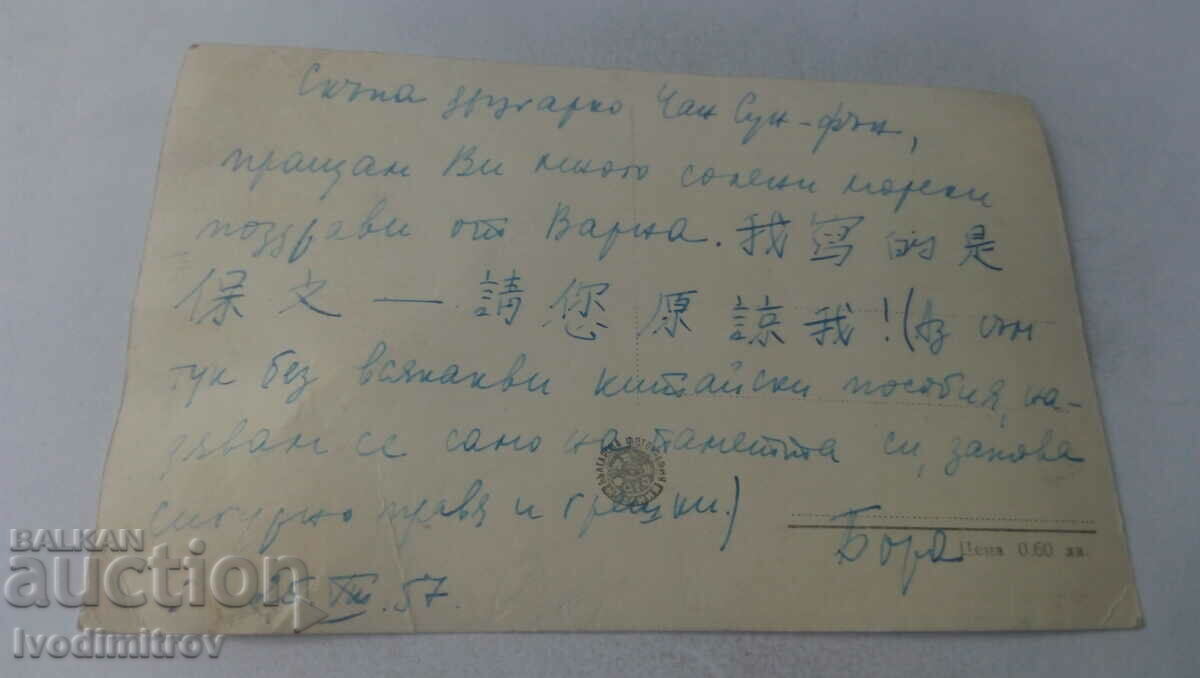 Скъпа другарко Чан Сун-фън,
пращам Ви много солени морски
поздрави от Варна. 我寫的是
保文 — 請您原諒我! (Аз съм
тук без всякакви китайски пособия, на-
дявам се само на паметта си, затова
сигурно правя и грешки.)
Бора
Цена 0.60 лв.
VIII.57.
BALKAN
auction
Ivodimitrov